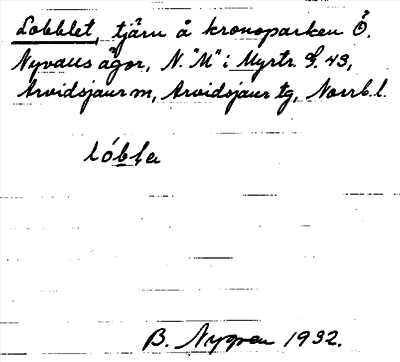 Lobblet, tjärn å kronoparken Ö.
Nyvalls ägor, N. "M" i Myrtr. S. 43,
Arvidsjaur m, Arvidsjaur tg, Norrb. l.
lóbla
B. Nygren 1932.